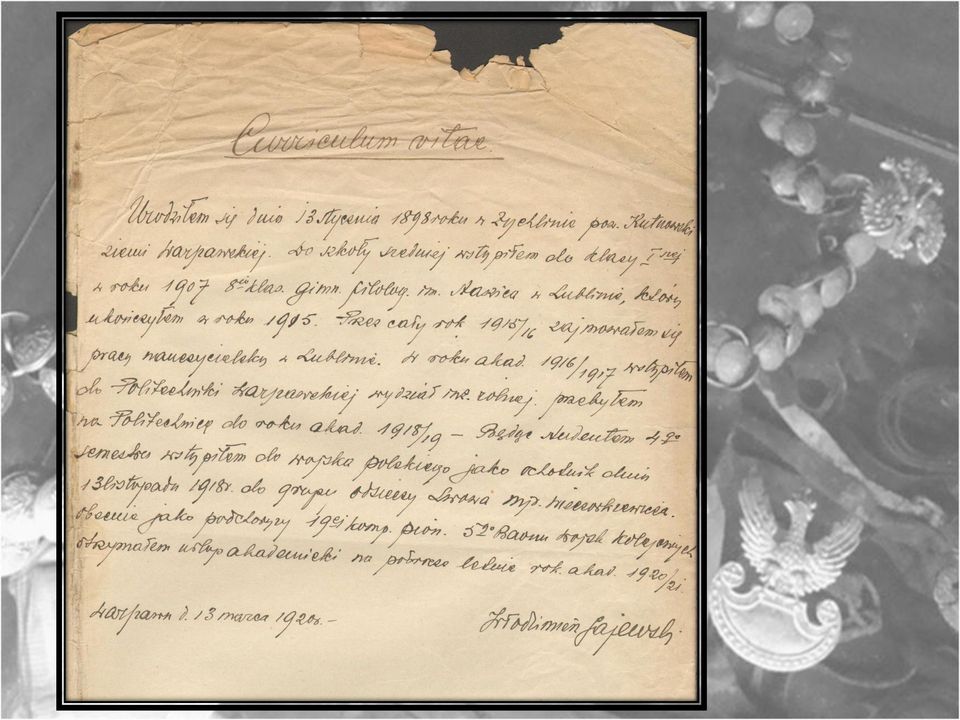 Curriculum vitae.
Urodziłem się dnia 13 stycznia 1898 roku w Żychlinie pow. Kutnowski
ziemi Warszawskiej. Do szkoły średniej wstąpiłem do klasy I szej
w roku 1907 8 klas. Gimn. filolog. im. Staszica w Lublinie, którą
ukończyłem w roku 1915. Przez cały rok 1915/16 zajmowałem się
pracą nauczycielską w Lublinie. W roku akad. 1916/1917 wstąpiłem
do Politechniki Warszawskiej wydział inż. rolnej. przebyłem
na Politechnice do roku akad. 1918/19 – Będąc studentem 4go
semestru wstąpiłem do wojska polskiego jako ochotnik dnia
13 listopada 1918r. do grupy odsieczy Lwowa mjr.
obecnie jako podchorąży 19ej komp. pion. 5go Baonu Wojsk Kolejowych
otrzymałem urlop akademicki na półrocze letnie rok. akad. 1920/21.
Warszawa d. 13 marca 1920r. –
Włodzimierz Gajewski.